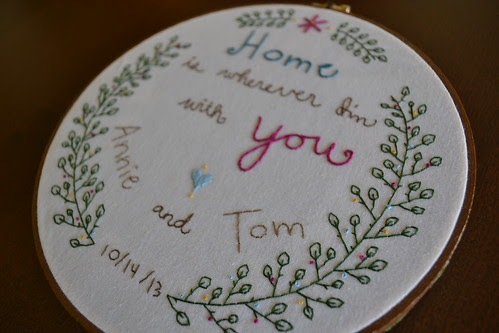 Home
is wherever I'm
with you
Annie
and
Tom
10/14/13